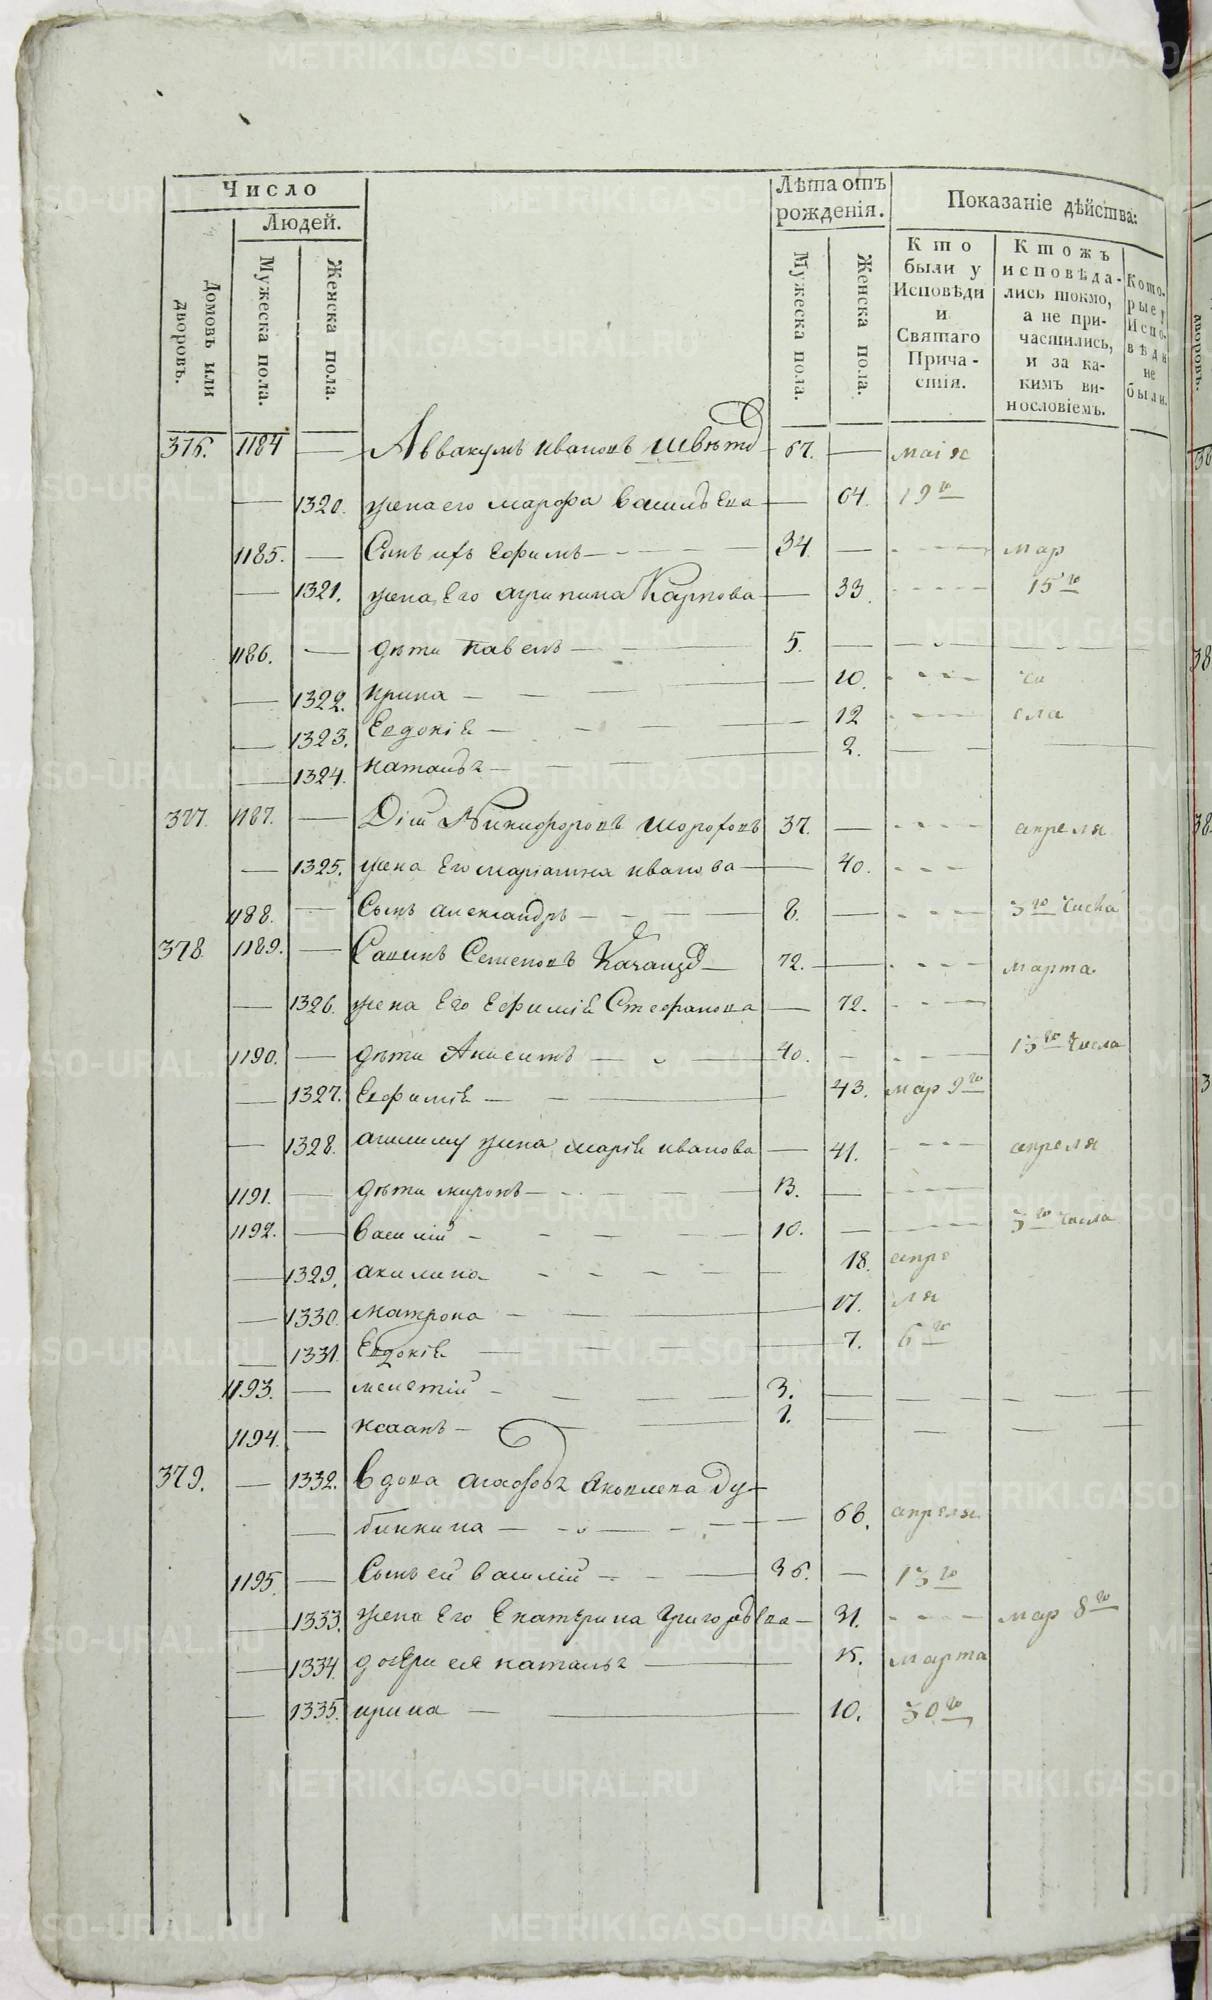 Число
Людей.
Домовъ или дворовъ.
Мужеска пола.
Женска пола.
Лѣта отъ рожденія.
Мужеска пола.
Женска пола.
Показаніе дѣйства:
Кто были у Исповѣди и Святаго Причастія.
Ктожъ исповѣдались токмо, а не причастились, и за какимъ винословіемъ.
Которые у Исповѣди не были.
376. 1184 — Аввакумъ Ивановъ 67. — маія
— 1320. жена его марфа васильева — 64. 19го
1185. — Сынъ ихъ Ефимъ — 34. — мар
— 1321. жена Его агрипина Карпова — 33. 15го
1186. — дѣти павелъ — 5. —
— 1322. ирина — 10. чи
— 1323. Евдокіѣ — 12 сла
— 1324. наталья — 2.
377. 1187. — Никифоровъ 37. — апреля
— 1325. жена Его маріамна иванова — 40.
1188. — Сынъ александръ — 8. — 3го числа
378. 1189. — Савинъ Семеновъ 72. — марта
— 1326. жена Его Ефиміѣ Стефанова — 72.
1190. — дѣти — 40. — 13го числа
— 1327. Ефиміѣ — 43. мар 9го
— 1328. жена маріѣ иванова — 41. апреля
1191. — дѣти миронъ — 13. —
1192. — василій — 10. — 3го числа
— 1329. акилина — 18. апре
— 1330. матрона — 17. ля
— 1331. Евдокіѣ — 7. 6го
1193. — мелетій — 3. —
1194. — Исаакъ — 1. —
379. — 1332. вдова агафья Яковлева Ду-
— бинкина — 68. апреля
1195. — Сынъ ей василій — 36. — 13го
— 1333. жена Его Екатерина Григорьева — 31. мар 8го
— 1334. дочери ея наталья — 15. марта
— 1335. ирина — 10. 30го
METRIKI.GASO-URAL.RU